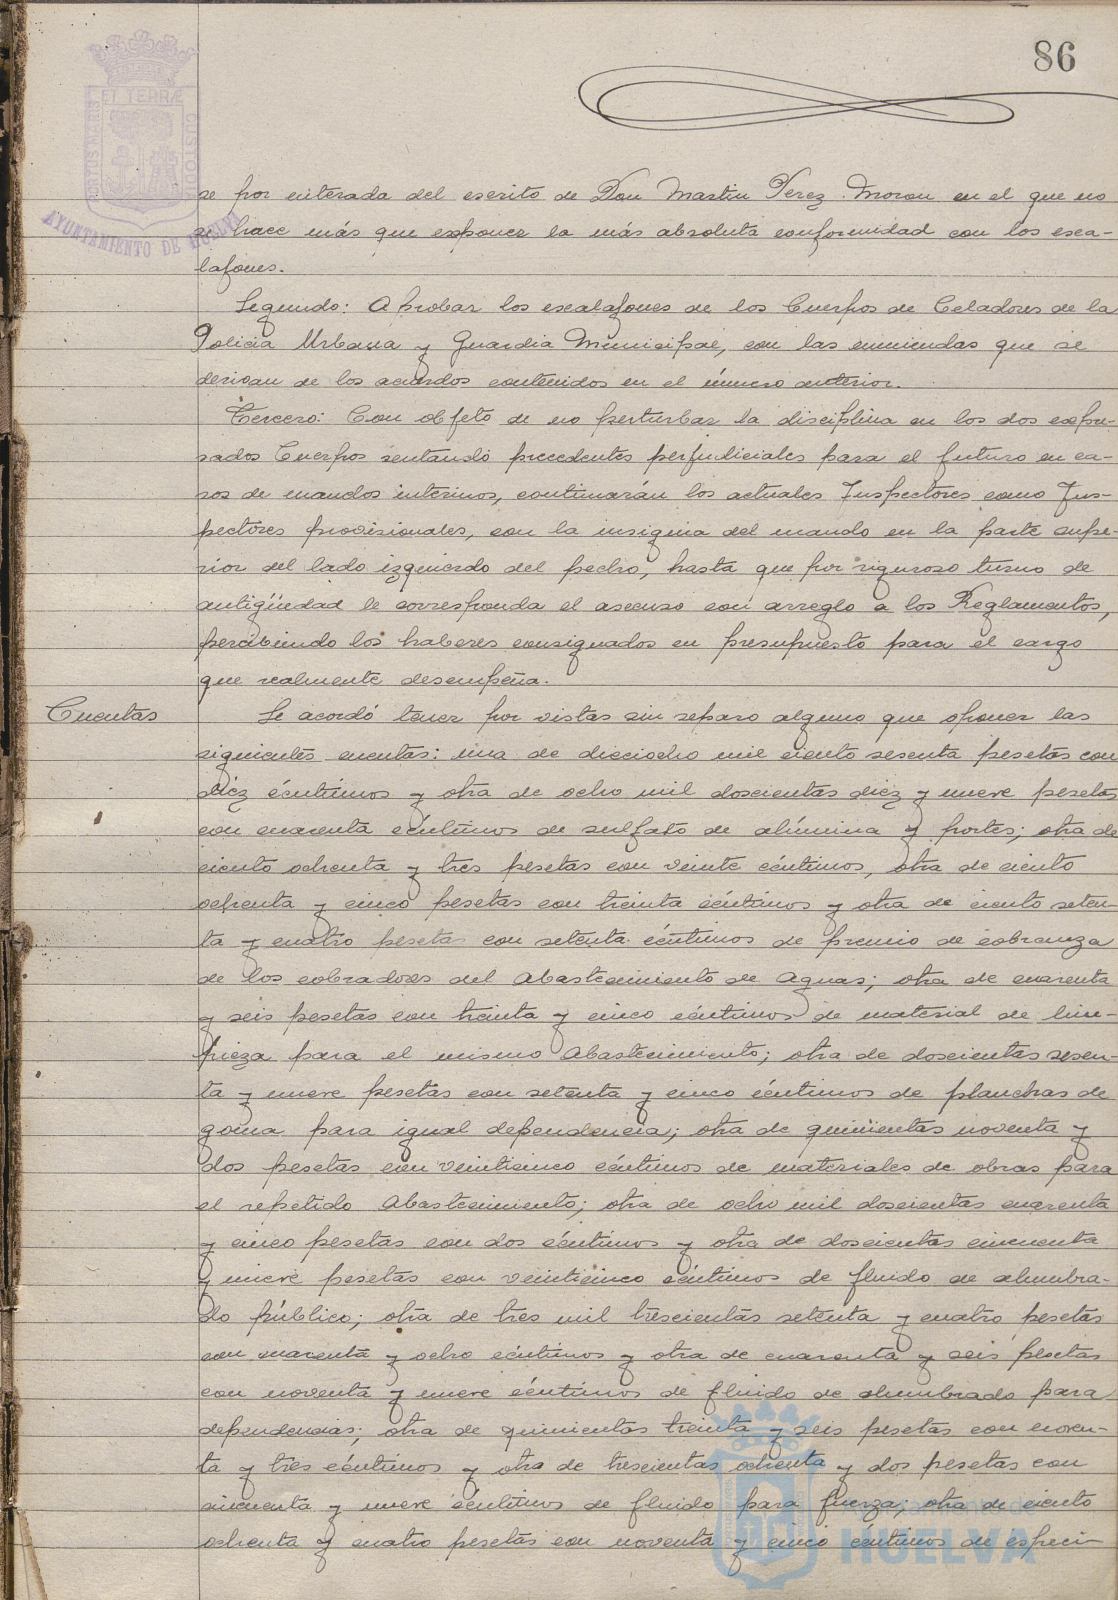 86
PORTUS MARIS ET TERRÆ CUSTODIA
AYUNTAMIENTO DE HUELVA
se por enterada del escrito de Don Martin Perez Moron en el que no
se hace más que exponer la más absoluta conformidad con los esca-
lafones.
Segundo: Aprobar los escalafones de los Cuerpos de Celadores de la
Policia Urbana y Guardia Municipal, con las enmiendas que se
derivan de los acuerdos contenidos en el número anterior.
Tercero: Con objeto de no perturbar la disciplina en los dos expre-
sados Cuerpos sentando precedentes perjudiciales para el futuro en ca-
sos de mandos interinos, continuarán los actuales Inspectores como Ins-
pectores provisionales, con la insignia del mando en la parte supe-
rior del lado izquierdo del pecho, hasta que por riguroso turno de
antigüedad le corresponda el ascenso con arreglo a los Reglamentos,
percibiendo los haberes consignados en presupuesto para el cargo
que realmente desempeña.
Cuentas
Se acordó tener por vistas sin reparo alguno que oponer las
siguientes cuentas: una de dieciocho mil ciento sesenta pesetas con
diéz céntimos y otra de ocho mil doscientas diez y nueve pesetas
con cuarenta céntimos de sulfato de alúmina y portes; otra de
ciento ochenta y tres pesetas con veinte céntimos, otra de ciento
ochenta y cinco pesetas con treinta céntimos y otra de ciento seten-
ta y cuatro pesetas con setenta céntimos de premio de cobranza
de los cobradores del Abastecimiento de Aguas; otra de cuarenta
y seis pesetas con treinta y cinco céntimos de material de lim-
pieza para el mismo Abastecimiento; otra de doscientas sesen-
ta y nueve pesetas con setenta y cinco céntimos de planchas de
goma para igual dependencia; otra de quinientas noventa y
dos pesetas con veinticinco céntimos de materiales de obras para
el repetido Abastecimiento; otra de ocho mil doscientas cuarenta
y cinco pesetas con dos céntimos y otra de doscientas cincuenta
y nueve pesetas con veinticinco céntimos de fluido de alumbra-
do público; otra de tres mil trescientas setenta y cuatro pesetas
con cuarenta y ocho céntimos y otra de cuarenta y seis pesetas
con noventa y nueve céntimos de fluido de alumbrado para
dependencias; otra de quinientas treinta y seis pesetas con noven-
ta y tres céntimos y otra de trescientas ochenta y dos pesetas con
cincuenta y nueve céntimos de fluido para fuerza; otra de ciento
ochenta y cuatro pesetas con noventa y cinco céntimos de especi-
Ayuntamiento de
HUELVA